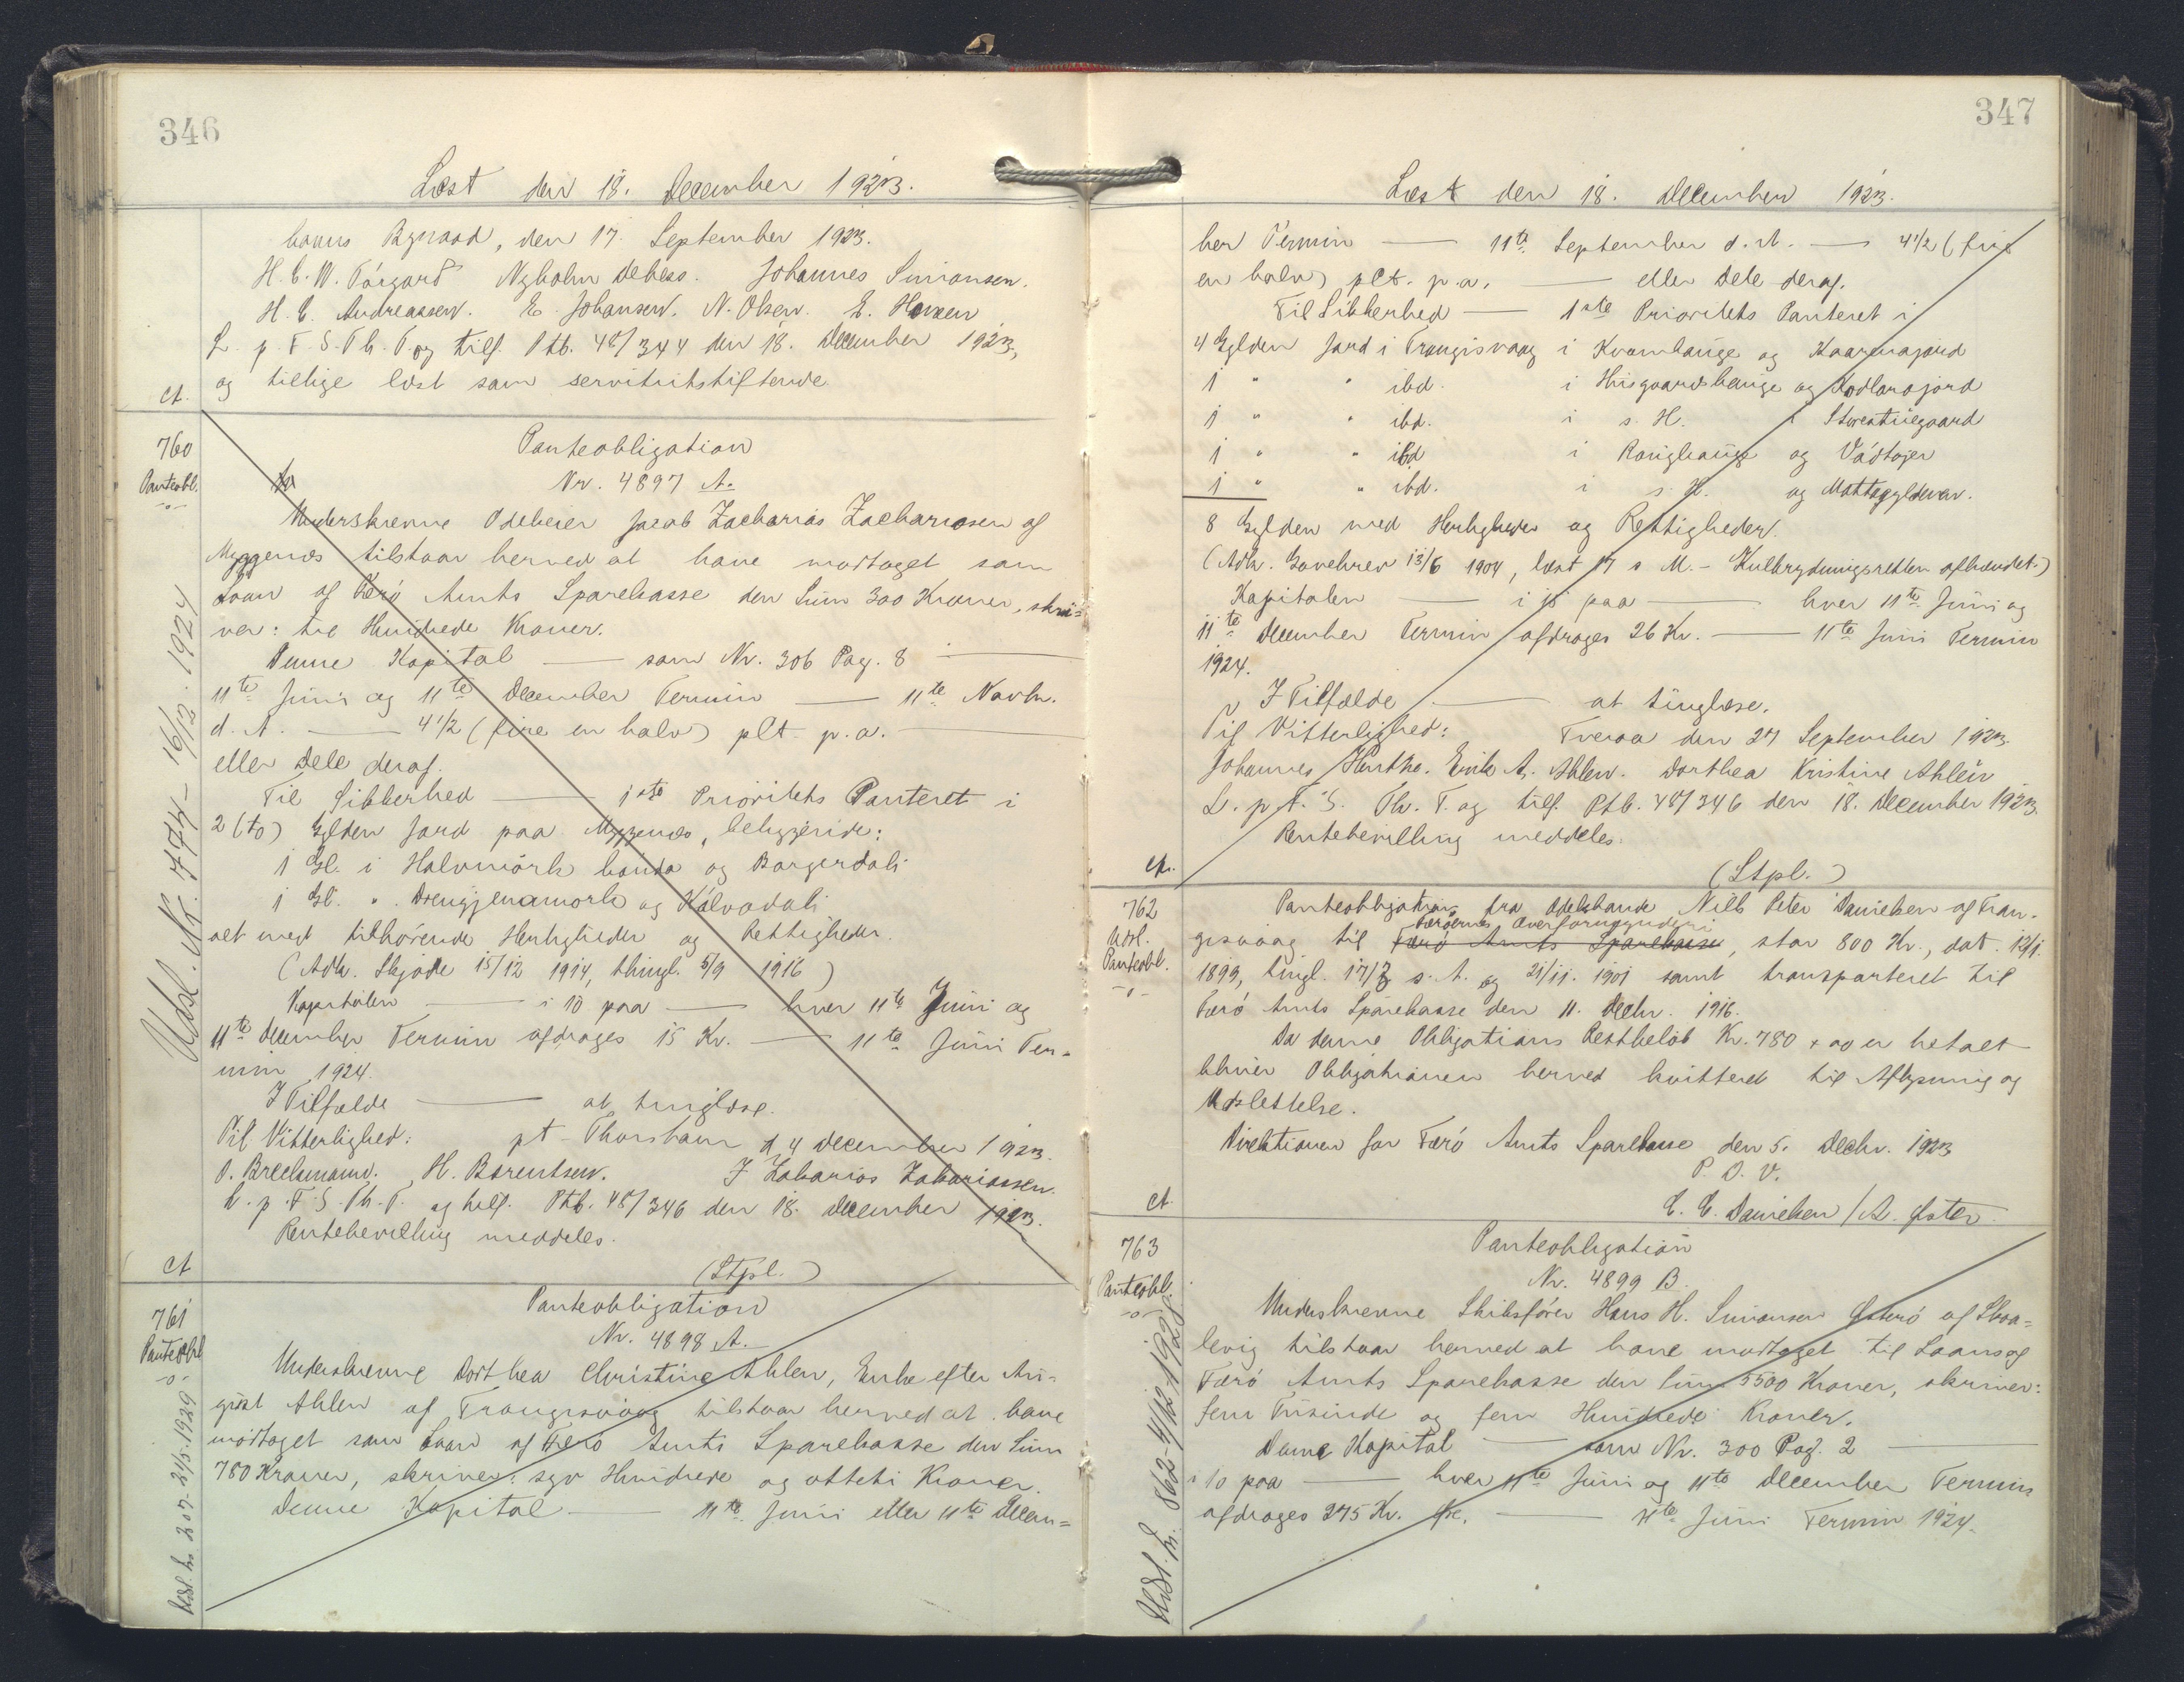 346
Læst den 18. December 1923.
havns Byraad, den 17. September 1923.
H. C. W. Tórgarð Nyholm Debess. Johannes Simonsen.
H. C. Andreassen. E. Johansen. N. Olsen. E. Hansen
L. p. F. S. Th. T. og tilf. Ptb. 48/344 den 18. December 1923,
og tillige læst som servitutstiftende
Ct.
760
Pantobl.
-o-
Panteobligation
Nr. 4897 A.
Underskrevne Odelseier Jacob Zacharias Zachariasen af
Myggenæs tilstaar herved at have modtaget som
Laan af Færø Amts Sparekasse den Sum 300 Kroner, skri=
ver: tre Hundrede Kroner.
Denne Kapital — som Nr. 306 Pag. 8 —
11te Juni og 11te December Termin — 11te Novbr.
d. A. — 4 1/2 (fire en halv) pCt. p. a. —
eller Dele deraf.
Til Sikkerhed — 1ste Prioritets Panteret i
2 (to) Gylden Jord paa Myggenæs, beliggende:
1 Gl. i Halvmörk handa og Borgardali
1 Gl. " Drengjenamörk og Kálvadali
alt med tilhørende Herligheder og Rettigheder.
(Adk. Skjøde 15/12 1914, thingl. 5/9 1916)
Kapitalen — i 10 paa — hver 11te Juni og
11te December Termin afdrages 15 Kr. — 11te Juni Ter=
min 1924.
I Tilfælde — at tinglæse.
Til Vitterlighed: pt. Thorshavn d. 4 December 1923.
O. Brechmann. H. Berentsen. J Zakarias Zakariassen.
L. p. F. S. Th. T. og tilf. Ptb. 48/346 den 18. December 1923.
Rentebevilling meddeles.
Ct
(Stpl.)
Udsl. Nr. 774 - 16/12. 1924
761
Panteobl
-o-
Panteobligation
Nr. 4898 A.
Underskrevne Dorthea Christine Ahlen, Enke efter Au=
gust Ahlen af Trangisvaag tilstaar herved at have
modtaget som Laan af Færø Amts Sparekasse den Sum
780 Kroner, skriver: syv Hundrede og otteti Kroner.
Denne Kapital — 11te Juni eller 11te Decem=
Udsl. Nr. 207 - 21/5. 1929
347
Læst den 18. December 1923.
ber Termin — 11te September d. A. — 4 1/2 (fire
en halv) pCt. p. a. — eller Dele deraf.
Til Sikkerhed — 1ste Prioritets Panteret i
4 Gylden Jord i Trangisvaag i Kvamhauge og Kaarenajord
1 " " ibd. i Husgaardshauge og Kodlarajord
1 " " ibd. i s. H. " Storestuegaard
1 " " ibd i Kanghauge og Vástojer
1 " " ibd. i s. H. og Mattagylderav.
8 Gylden med Herligheder og Rettigheder.
(Adk. Gavebrev 13/6 1904, læst 17 s M. - Kulbrydningsretten afhændet.)
Kapitalen — i 15 paa — hver 11te Juni og
11te December Termin afdrages 26 Kr. — 11te Juni Termin
1924.
I Tilfælde — at tinglæse.
Til Vitterlighed: Tveraa den 27 September 1923.
Johannes Hentze. Emil A. Ahlen. Dorthea Kristine Ahlén
L. p. F. S. Th. T. og tilf. Ptb. 48/346 den 18. December 1923.
Rentebevilling meddeles.
Ct.
(Stpl.)
762
Udsl.
Panteobl.
-o-
Panteobligation fra Odelsbonde Niels Peter Danielsen af Tran-
Færøernes Overformynderi
gisvaag til Færø Amts Sparekasse, stor 800 Kr., dat. 12/1.
1899, tingl. 17/7 s. A. og 21/11. 1901 samt transporteret til
Færø Amts Sparekasse den 11. Decbr. 1916.
Da denne Obligations Restbeløb Kr. 780 + 00 er betalt
bliver Obligationen herved kvitteret til Aflysning og
Udslettelse.
Direktionen for Færø Amts Sparekasse den 5. Decbr. 1923
P. D. V.
Ct.
C. C. Danielsen / A. Øster.
763
Panteobl.
-o-
Panteobligation
Nr. 4899 B.
Underskrevne Skibsfører Hans H. Simonsen Østerø af Skaa=
levig tilstaar herved at have modtaget til Laans af
Færø Amts Sparekasse den Sum 5500 Kroner, skriver:
fem Tusinde og fem Hundrede Kroner.
Denne Kapital — som Nr. 300 Pag. 2 —
i 10 paa — hver 11te Juni og 11te December Termin
afdrages 275 Kr. — 11te Juni Termin 1924.
Udsl. Nr. 862 - 4/12. 1928